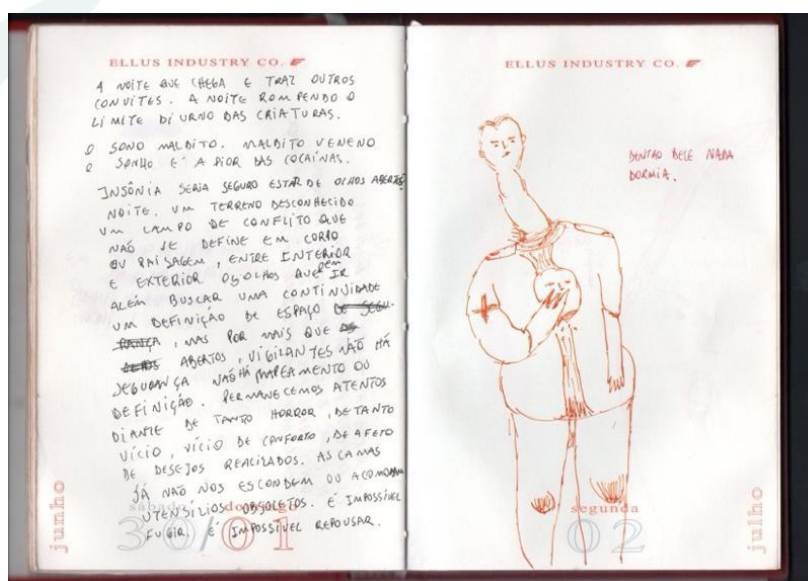 ELLUS INDUSTRY CO.
A NOITE QUE CHEGA E TRAZ OUTROS
CONVITES. A NOITE ROMPENDO O
LIMITE DIURNO DAS CRIATURAS.
O SONO MALDITO. MALDITO VENENO
O SONHO E' A PIOR DAS COCAÍNAS.
INSÔNIA SERIA SEGURO ESTAR DE OLHOS ABERTOS
NOITE. UM TERRENO DESCONHECIDO
UM CAMPO DE CONFLITO QUE
NÃO SE DEFINE EM CORPO
OU PAISAGEM, ENTRE INTERIOR
E EXTERIOR OS OLHOS QUEREM IR
ALÉM BUSCAR UMA CONTINUIDADE
UM DEFINIÇÃO DE ESPAÇO DE SEGU-
RANÇA, MAS POR MAIS QUE OS
ABERTOS, VIGILANTES NÃO HÁ
SEGURANÇA NÃO HÁ MAPEAMENTO OU
DEFINIÇÃO. PERMANECEMOS ATENTOS
DIANTE DE TANTO HORROR, DE TANTO
VÍCIO, VÍCIO DE CONFORTO, DE AFETO
DE DESEJOS REALIZADOS. AS CAMAS
JÁ NÃO NOS ESCONDEM OU ACOMODAM
UTENSÍLIOS OBSOLETOS. É IMPOSSÍVEL
FUGIR. É IMPOSSÍVEL REPOUSAR.
junho
sábado domingo
30/01
ELLUS INDUSTRY CO.
DENTRO DELE NADA
DORMIA.
segunda
02
julho